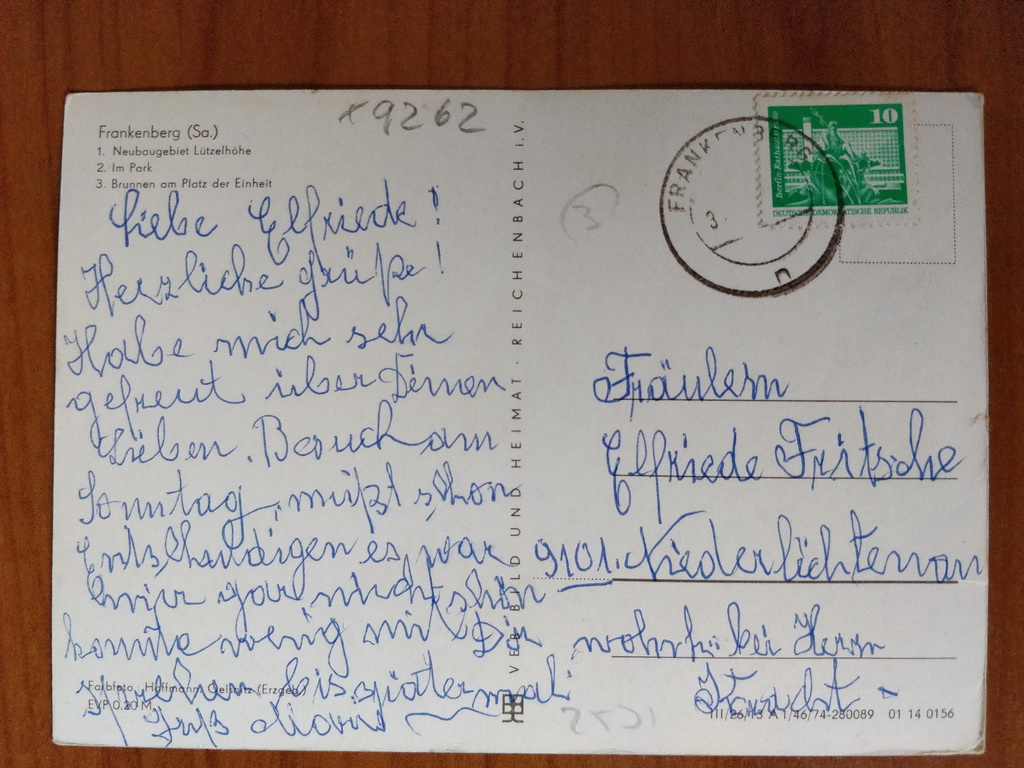 Frankenberg (Sa.)
1. Neubaugebiet Lützelhöhe
2. Im Park
3. Brunnen am Platz der Einheit
x9262
Liebe Elfriede!
Herzliche Grüße!
Habe mich sehr
gefreut über Deinen
Lieben Besuch am
Sonntag, mußt schon
Entschuldigen es war
mir gar nicht schön
konnte wenig mit Dir
sprechen bis später mal
Gruß
Farbfoto: Hoffmann, Oelsnitz (Erzgeb.)
EVP 0.20 M
VEB BILD UND HEIMAT · REICHENBACH i. V.
3
FRANKENBERG
10
Berlin Rathausstraße
DEUTSCHE DEMOKRATISCHE REPUBLIK
Fräulein
Elfriede Fritsche
9101. Niederlichtenau
wohnh. bei Herrn
III/26/13 A 1/46/74-280089 01 14 0156